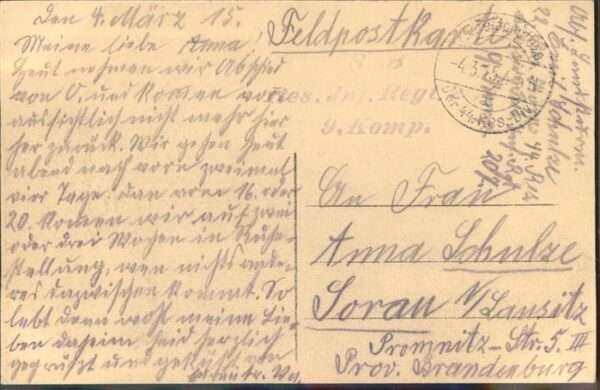 Den 4. März 15.
Meine liebe Anna!
Heut nehmen wir Abschied
von O. und kommen vor
aussichtlich nicht mehr hier
her zurück. Wir gehen heut
abend nach vorn zweimal
vier Tage. dan vom 16. oder
20. komen wir auf zwei
oder drei Wochen in Ruhe-
stellung, wen nichts ande-
res dazwischen kommt. So
lebt denn wohl meine Lie-
ben daheim seid herzlich
gegrüßt und geküßt von
Feldpostkarte
Res. Inf. Regt.
9. Komp.
An Frau
Anna Schulze
Sorau N/Lausitz
Promnitz-Str. 5. III
Prov. Brandenburg